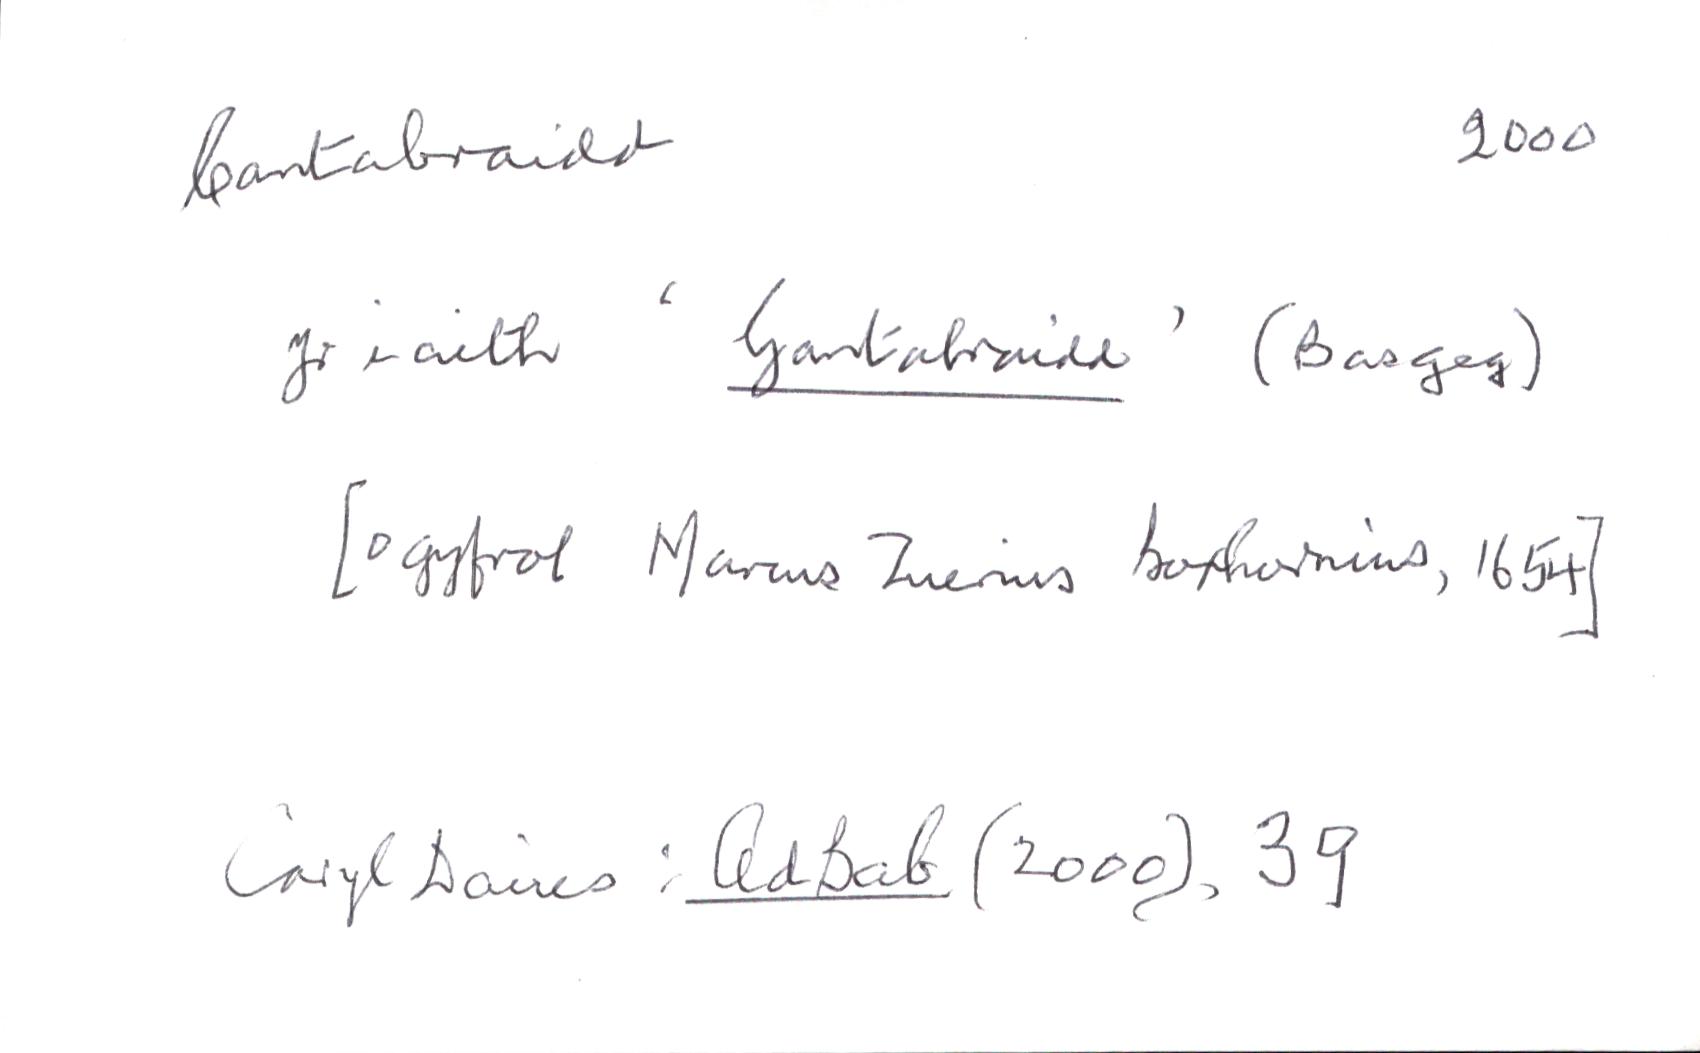 Cantabraidd 2000
yr iaith ‘Gantabraidd’ (Basgeg)
[o gyfrol Marcus Zuerius Boxhornius, 1654]
Caryl Davies: AdBab (2000), 39